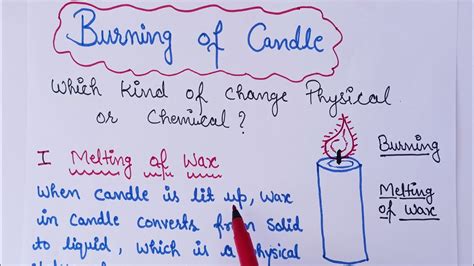 Burning of Candle
Which Kind of change Physical
or Chemical?
I Melting of Wax
When candle is lit up, wax
in candle converts from solid
to liquid, which is a physical
Burning
Melting
of Wax